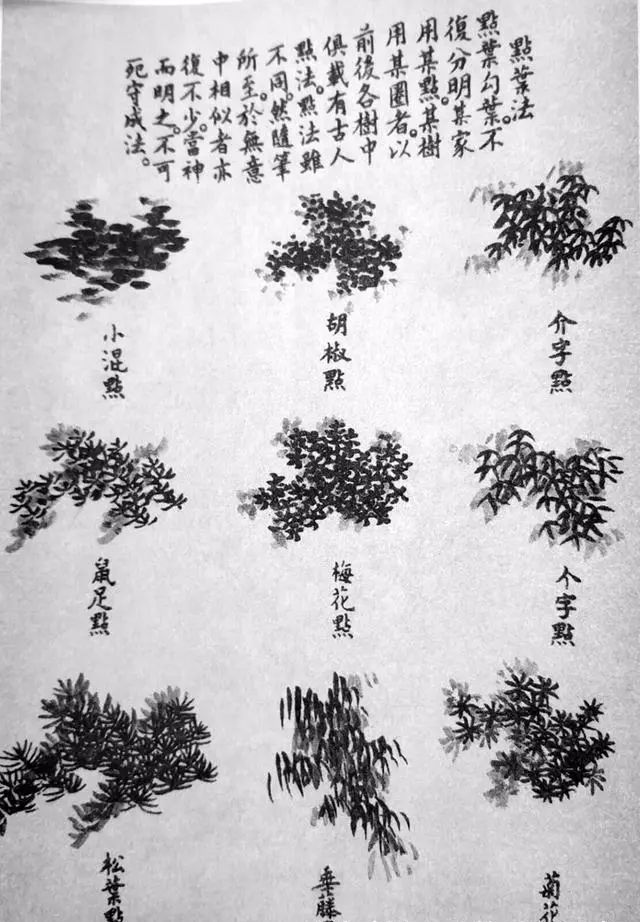 點葉法
點葉勾葉。不
復分明某家
用某點。某樹
用某圈者。以
前後各樹中
俱載有古人
點法。點法雖
不同。然隨筆
所至於無意
中相似者亦
復不少。當神
而明之。不可
死守成法。
介字點
胡椒點
小混點
个字點
梅花點
鼠足點
菊花
垂藤
松葉點